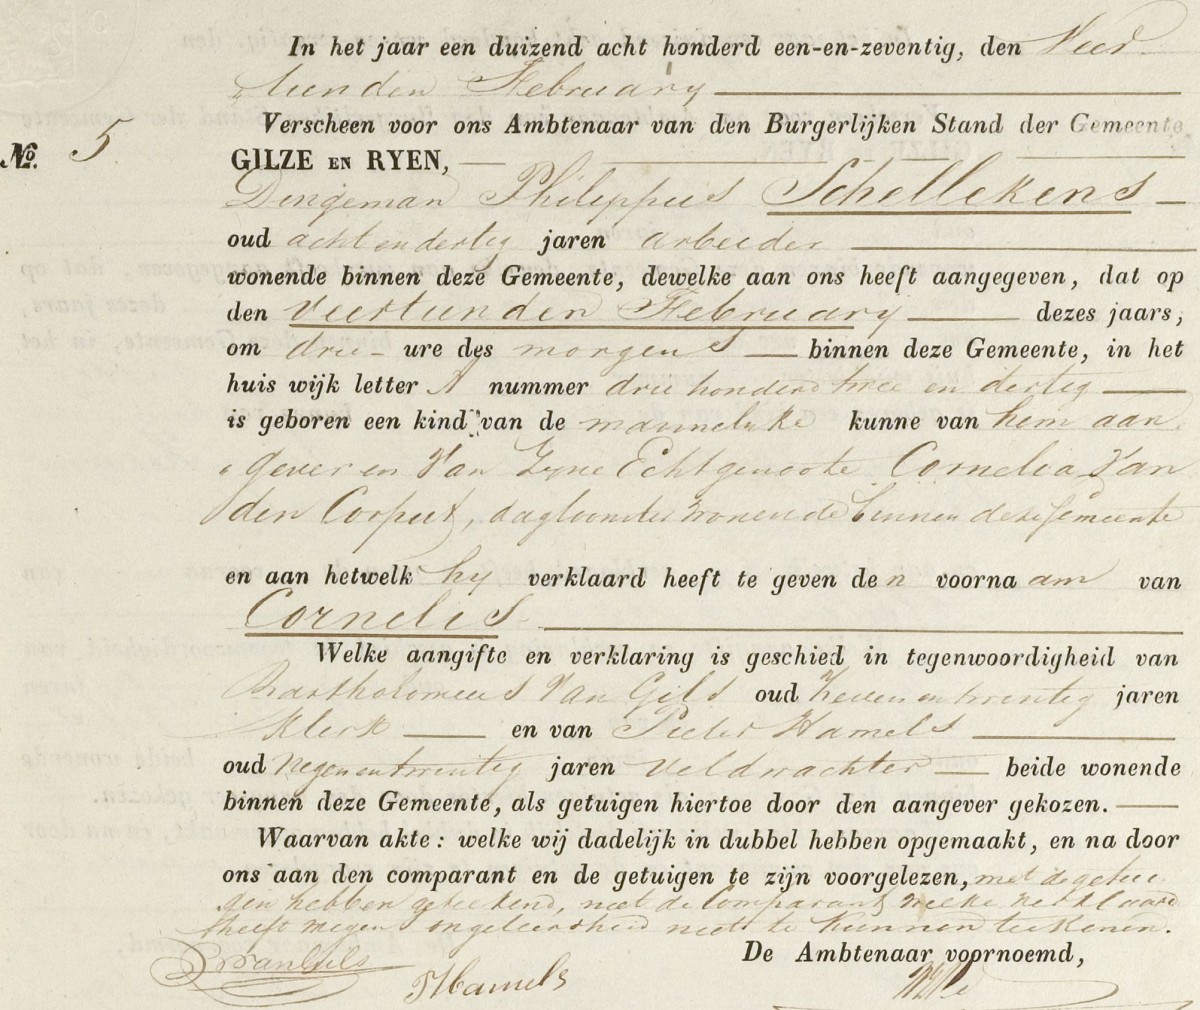 In het jaar een duizend acht honderd een-en-zeventig, den Veer
tienden February
Verscheen voor ons Ambtenaar van den Burgerlijken Stand der Gemeente
No. 5
GILZE EN RYEN,
Dingeman Philippus Schellekens
oud acht en dertig jaren arbeider
wonende binnen deze Gemeente, dewelke aan ons heeft aangegeven, dat op
den veertienden February dezes jaars,
om drie ure des morgens binnen deze Gemeente, in het
huis wijk letter A nummer drie honderd twee en dertig
is geboren een kind van de mannelijke kunne van hem aan
gever en van zyne Echtgenoote Cornelia van
den Corput, dagloonster wonende binnen deze Gemeente
en aan hetwelk hy verklaard heeft te geven den voornaam van
Cornelis
Welke aangifte en verklaring is geschied in tegenwoordigheid van
Bartholomeus van Gils oud zeven en twintig jaren
klerk en van Pieter Hamels
oud negen en twintig jaren veldwachter beide wonende
binnen deze Gemeente, als getuigen hiertoe door den aangever gekozen.
Waarvan akte: welke wij dadelijk in dubbel hebben opgemaakt, en na door
ons aan den comparant en de getuigen te zijn voorgelezen, met de getui
gen hebben geteekend, niet de Comparant welke verklaard
heeft wegens ongeleerdheid niet te kunnen teekenen.
De Ambtenaar voornoemd,
B van Gils
P Hamels